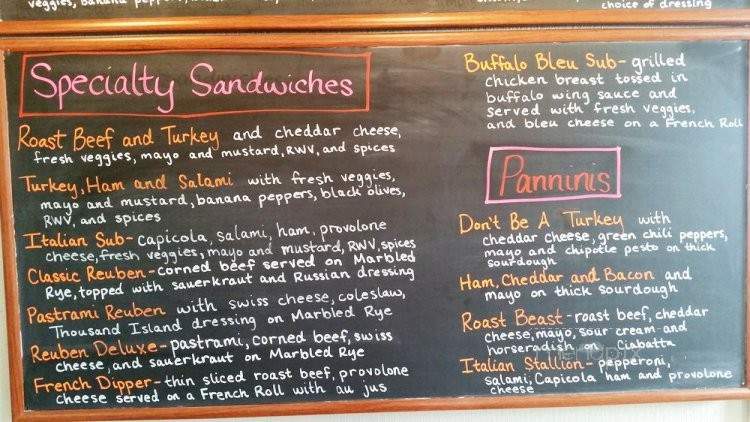 veggies, banana peppers,
choice of dressing
Specialty Sandwiches
Roast Beef and Turkey and cheddar cheese,
fresh veggies, mayo and mustard, RWV, and spices
Turkey, Ham and Salami with fresh veggies,
mayo and mustard, banana peppers, black olives,
RWV, and spices
Italian Sub- capicola, salami, ham, provolone
cheese, fresh veggies, mayo and mustard, RWV, spices
Classic Reuben- corned beef served on Marbled
Rye, topped with sauerkraut and Russian dressing
Pastrami Reuben with swiss cheese, coleslaw,
Thousand Island dressing on Marbled Rye
Reuben Deluxe- pastrami, corned beef, swiss
cheese, and sauerkraut on Marbled Rye
French Dipper- thin sliced roast beef, provolone
cheese served on a French Roll with au jus
Buffalo Bleu Sub- grilled
chicken breast tossed in
buffalo wing sauce and
served with fresh veggies,
and bleu cheese on a French Roll
Panninis
Don't Be A Turkey with
cheddar cheese, green chili peppers,
mayo and chipotle pesto on thick
sourdough
Ham, Cheddar and Bacon and
mayo on thick sourdough
Roast Beast- roast beef, cheddar
cheese, mayo, sour cream and
horseradish on Ciabatta
Italian Stallion- pepperoni,
salami, Capicola ham and provolone
cheese